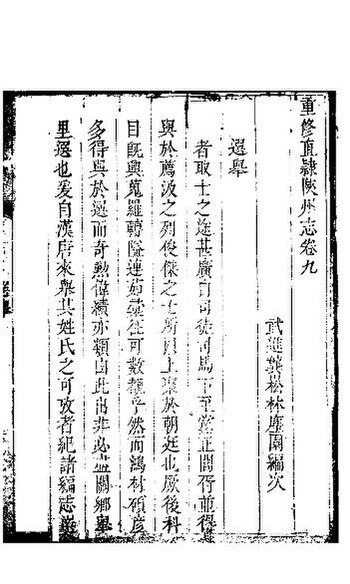 重修直隸陝州志卷九
武進龔松林塵園編次
選舉
者取士之途甚廣自司徒司馬下至黨正閭胥重得
與於薦汲之列俊傑之士所以上聚於朝廷也厥後科
目旣興蒐羅轉隘連茹彙往可數覩乎然而鴻材碩彥
多得與於選而奇勲偉績亦頼由此出非必盡關鄉舉
里選也爰自漢唐來舉其姓氏之可攷者紀諸編志選